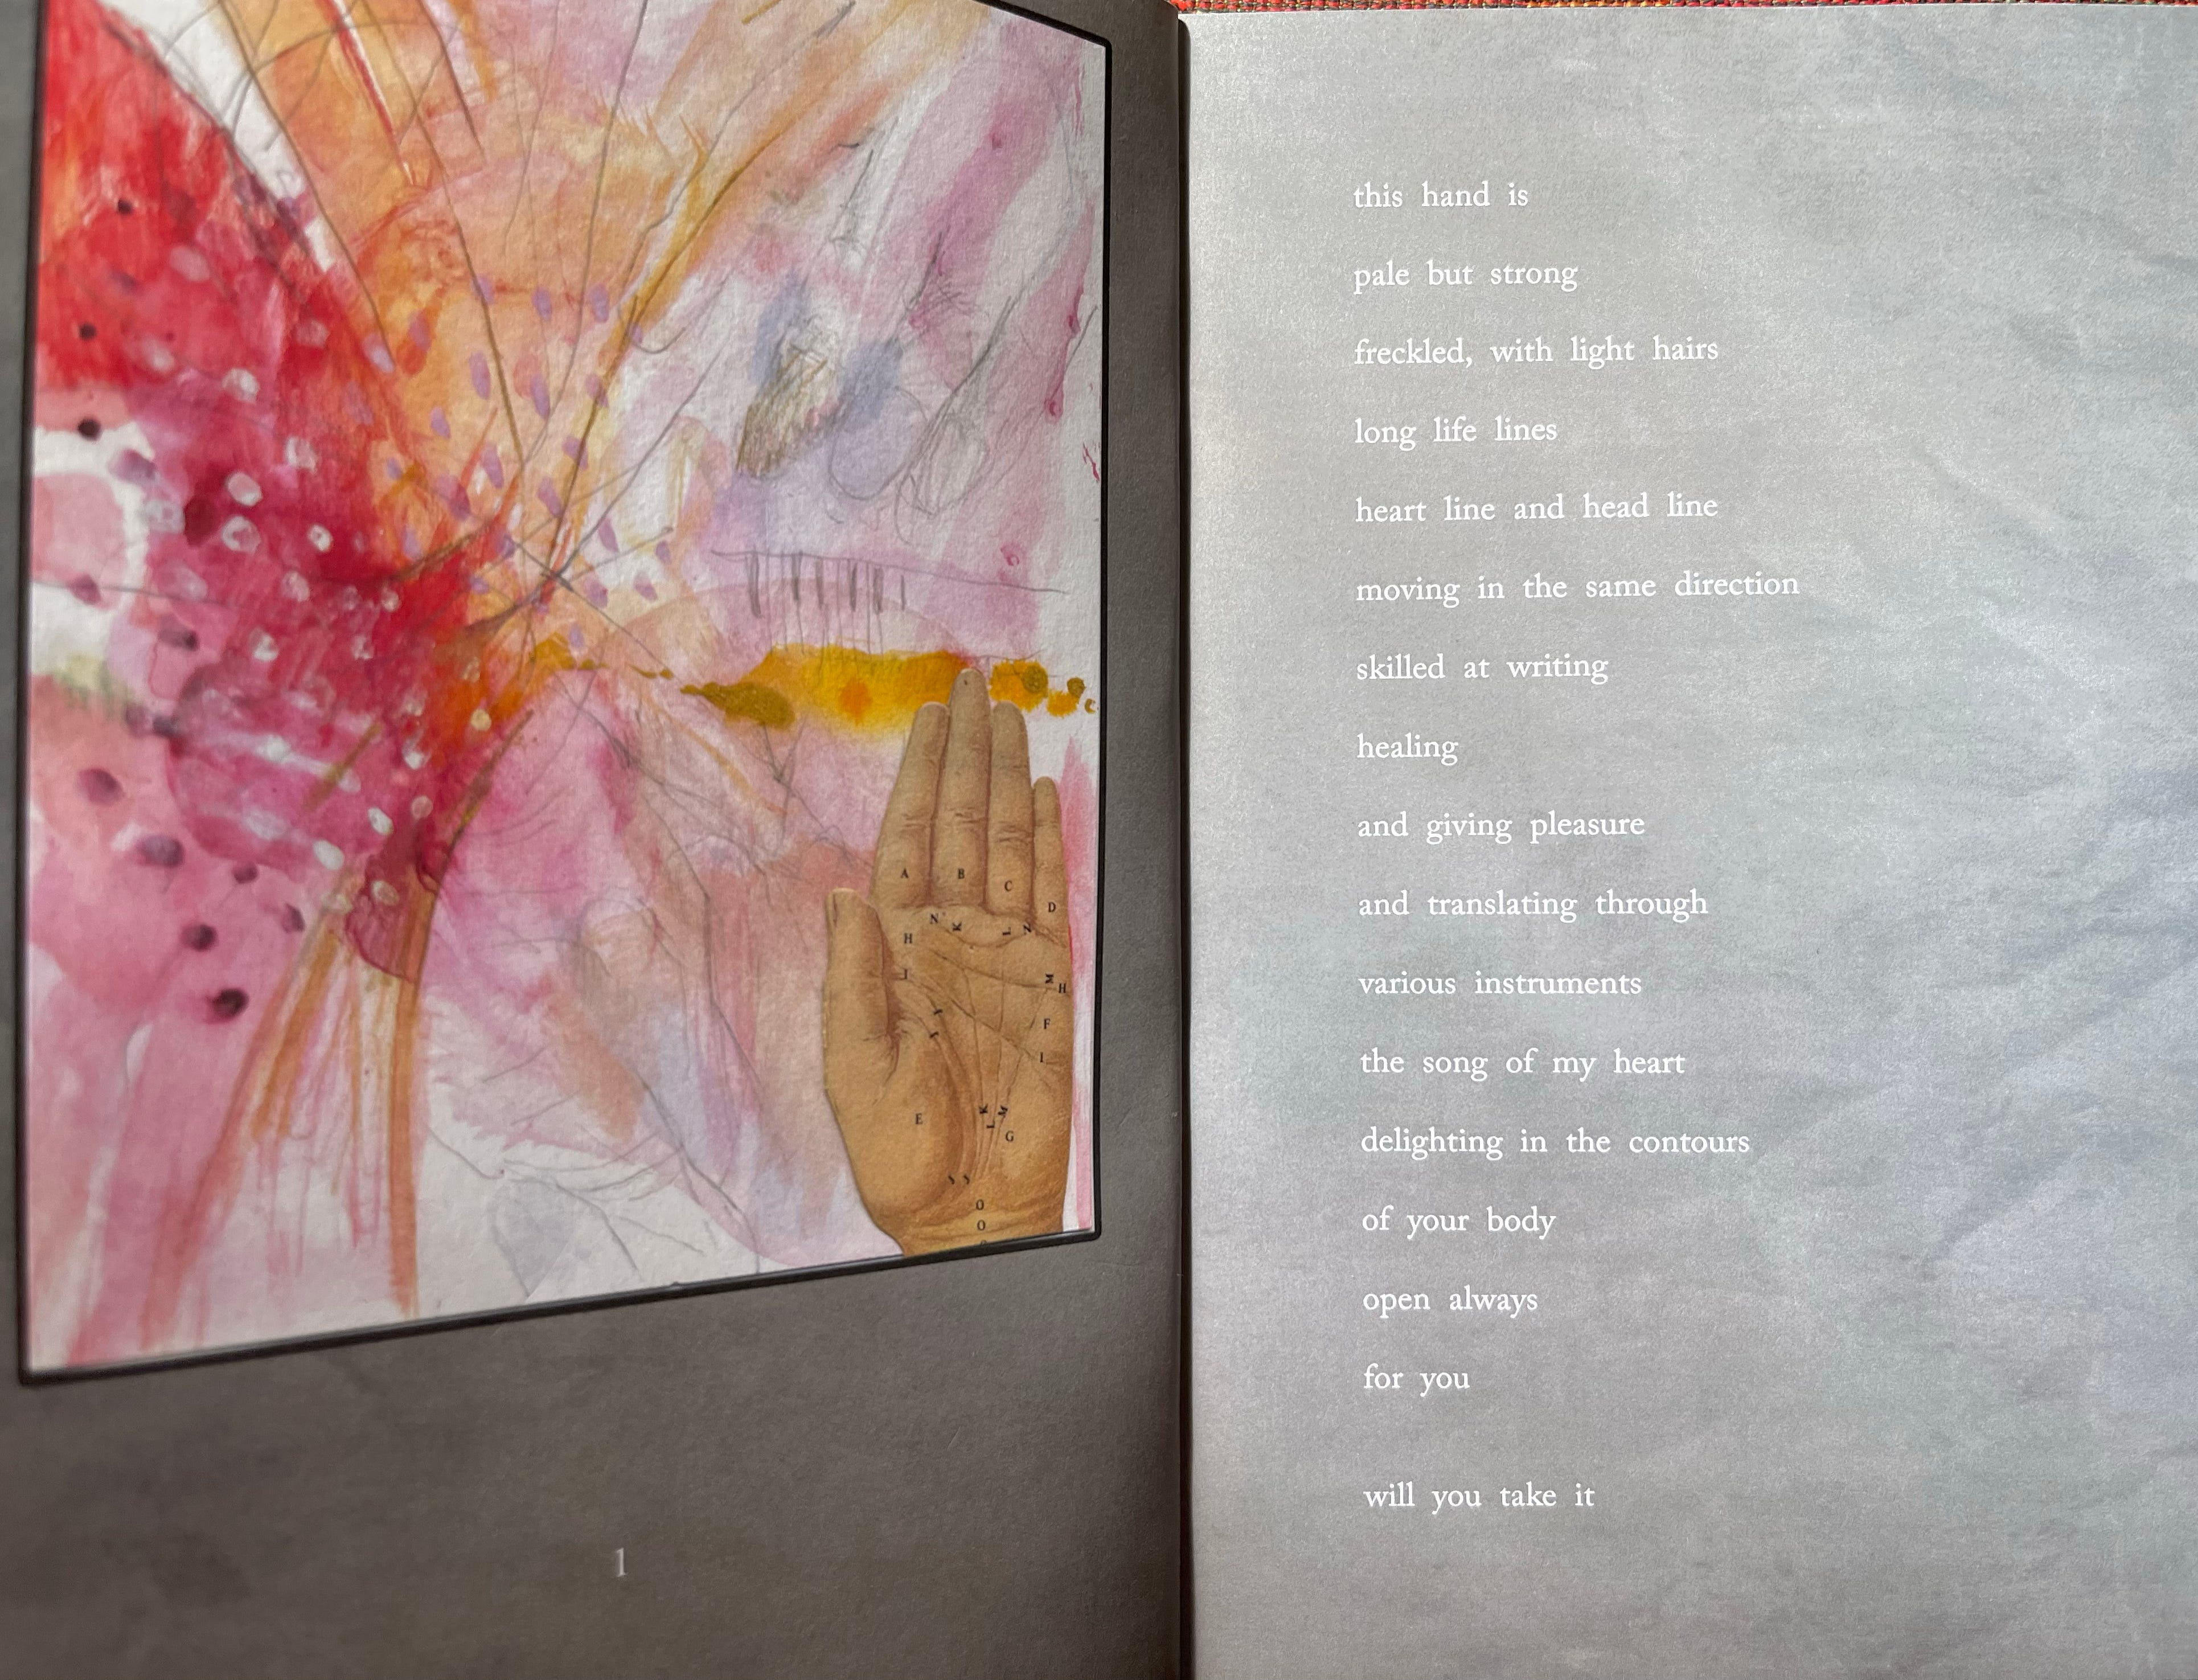 A
B
C
D
N
K
L
N
H
I
M
H
F
I
E
K
L
M
G
S S
O
O
1
this hand is
pale but strong
freckled, with light hairs
long life lines
heart line and head line
moving in the same direction
skilled at writing
healing
and giving pleasure
and translating through
various instruments
the song of my heart
delighting in the contours
of your body
open always
for you
will you take it